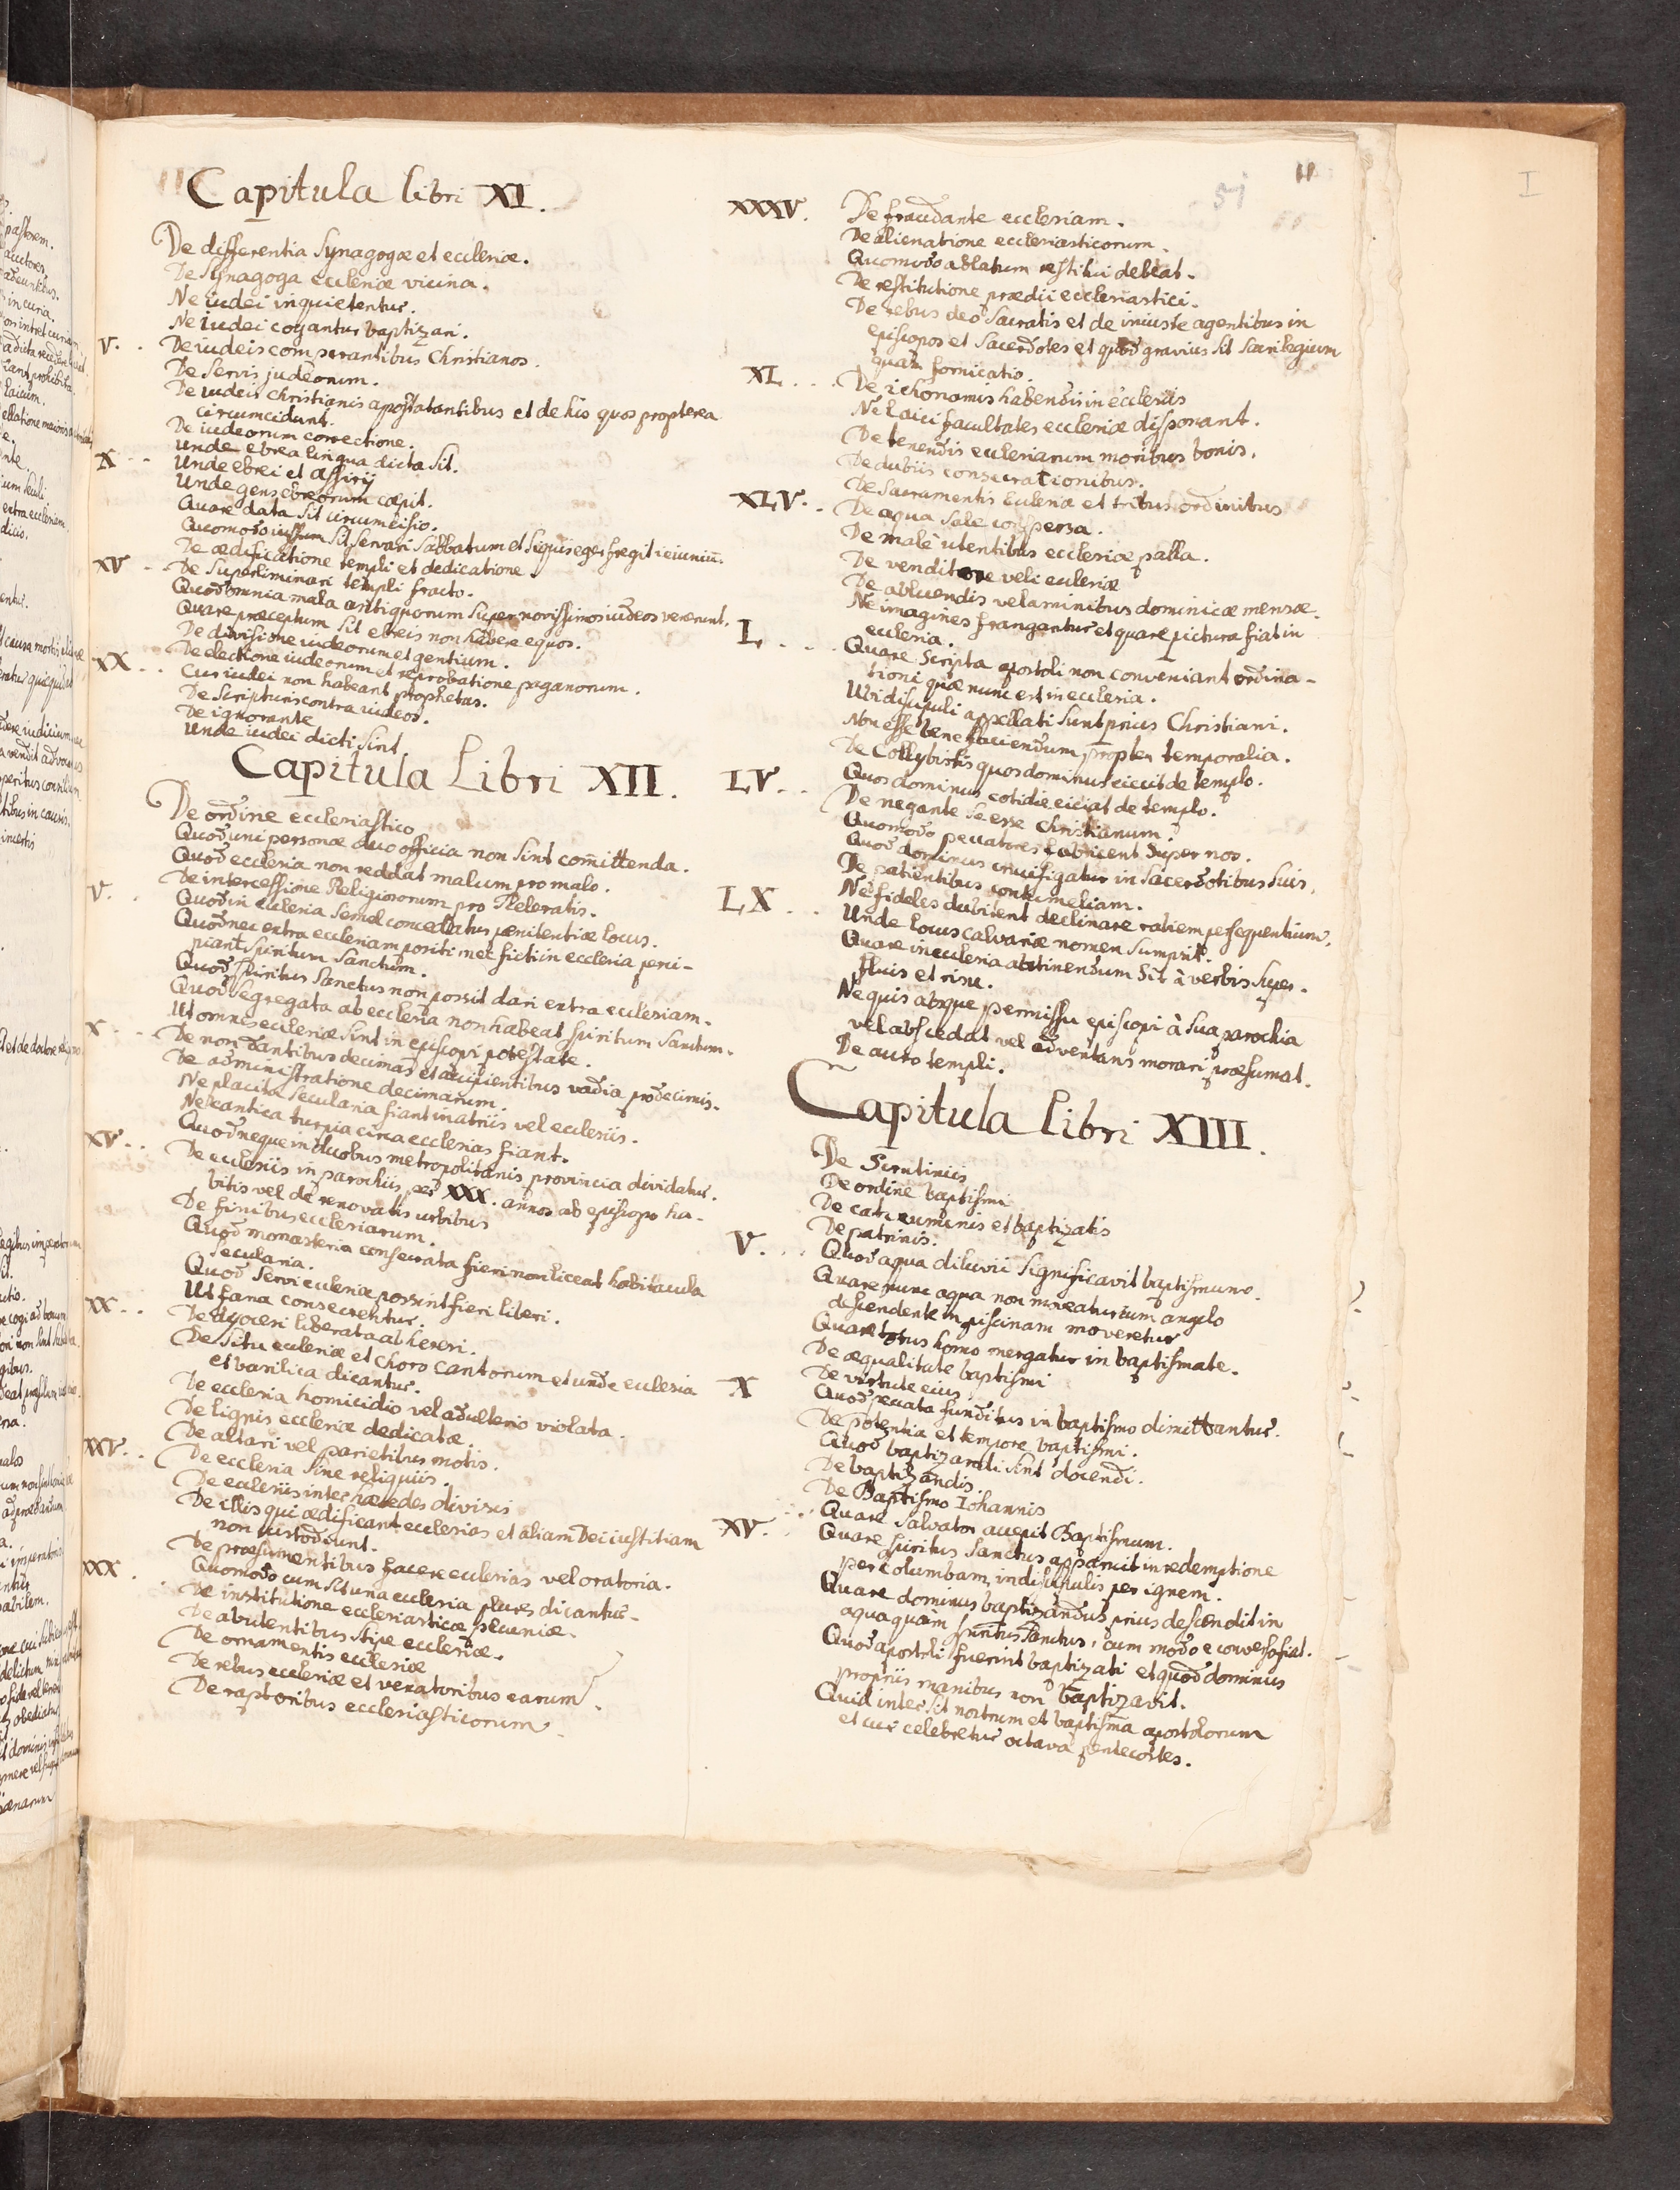 Capitula libri XI.
De differentia Synagogæ et ecclesiæ.
De Synagoga ecclesiæ vicina.
Ne iudei inquietentur.
Ne iudei cogantur baptizari.
V. . De iudeis comparantibus Christianos.
De servis judeorum.
De iudeis christianis apostatantibus et de his quos propterea
circumcidunt.
De iudeorum correctione.
Unde ebrea lingua dicta sit.
X . . Unde ebrei et assirij
Unde gens ebreorum cœpit.
Quare data sit circumcisio.
Quomodo iussum sit servari sabbatum et si quis eger fregit ieiuniū.
De ædificatione templi et dedicatione.
XV . De superliminari templi fracto.
Quod omnia mala antiquorum super novissimos iudeos venerunt.
Quare præceptum sit ebreis non habere equos.
De divisione iudeorum et gentium.
De electione iudeorum et reprobatione paganorum.
XX . . Cur iudei non habeant prophetas.
De scripturis contra iudeos.
De ignorante
Unde iudei dicti sint.
Capitula Libri XII.
De ordine ecclesiastico
Quod uni personæ duo officia non sint com̄ittenda.
Quod ecclesia non reddat malum pro malo.
De intercessione Religiosorum pro sceleratis.
V. . Quod in ecclesia semel concedatur pœnitentiæ locus.
Quod nec extra ecclesiam positi nec ficti in ecclesia perci-
piant spiritum sanctum.
Quod spiritus sanctus non possit dari extra ecclesiam.
Quod segregata ab ecclesia non habeat spiritum sanctum.
Ut omnes ecclesiæ sint in episcopi potestate.
X . . De non dantibus decimas et accipientibus vadia pro decimis.
De administratione decimarum.
Ne placita secularia fiant in atriis vel ecclesiis.
Ne cantica turpia circa ecclesias fiant.
Quod neque in duobus metropolitanis provincia dividatur.
XV . . De ecclesiis in parochiis per XXX. annos ab episcopo ha-
bitis vel de renovatis urbibus
De finibus ecclesiarum.
Quod monasteria consecrata fieri non liceat habitacula
secularia.
Quod servi ecclesiæ possint fieri liberi.
Ut fana consecrentur.
XX . . De dyocesi liberata ab heresi.
De situ ecclesiæ et choro cantorum et unde ecclesia
et basilica dicantur.
De ecclesia homicidio vel adulterio violata.
De lignis ecclesiæ dedicatæ.
De altari vel parietibus motis.
XXV. . De ecclesia sine reliquiis.
De ecclesiis inter hæredes divisis
De illis qui ædificant ecclesias et aliam Dei iustitiam
non custodiunt.
De præsumentibus facere ecclesias vel oratoria.
XXX . Quomodo cum sit una ecclesia plures dicantur-
De institutione ecclesiasticæ pecuniæ.
De abutentibus stipe ecclesiæ.
De ornamentis ecclesiæ
De rebus ecclesiæ et venatoribus earum.
De raptoribus ecclesiasticorum
51
XXXV. De fraudante ecclesiam.
De alienatione ecclesiasticorum.
Quomodo ablatum restitui debeat.
De restitutione prædii ecclesiastici.
De rebus deo sacratis et de iniuste agentibus in
episcopos et sacerdotes et quod gravius sit sacrilegium
quam fornicatio.
XL . . . De ichonomis habendis in ecclesiis
Ne laici facultates ecclesiæ disponant.
De tenendis ecclesiarum moribus bonis.
De dubiis consecrationibus.
De sacramentis Ecclesiæ et tribus ordinibus
XLV. . De aqua sale conspersa.
De male utentibus ecclesiæ palla.
De venditore veli ecclesiæ
De abluendis velaminibus dominicæ mensæ.
Ne imagines frangantur et quare pictura fiat in
ecclesia.
L . . . Quare scripta apostoli non conveniant ordina-
tioni quæ nunc est in ecclesia.
Ubi discipuli appellati sunt prius Christiani.
Non esse bene faciendum propter temporalia.
De Collybistis quos dominus eiecit de templo.
LV. . Quos dominus cotidie eiciat de templo.
De negante se esse christianum.
Quomodo peccatores fabricent super nos.
Quod dominus crucifigatur in sacerdotibus suis.
De patientibus contumeliam.
LX . . Ne fideles dubitent declinare rabiem persequentium.
Unde locus calvariæ nomen sumpsit.
Quare in ecclesia abstinendum sit à verbis super-
fluis et risu.
Ne quis absque permissu episcopi à sua parochia
vel abscedat vel adventans morari præsumat.
De auro templi.
Capitula libri XIII.
De Scrutiniis
De ordine baptismi
De catecuminis et baptizatis
De patrinis.
V. . . Quod aqua diluvii significavit baptismum.
Quare nunc aqua non moveatur cum angelo
descendente in piscinam moveretur
Quare totus homo mergatur in baptismate.
De æqualitate baptismi
De virtute eius
X Quod peccata funditus in baptismo dimittantur.
De potentia et tempore baptismi.
Quod baptizandi sint docendi.
De baptizandis.
De Baptismo Iohannis
XV. . Quare salvator accepit Baptismum.
Quare spiritus sanctus apparuit in redemptione
per columbam, in discipulis per ignem.
Quare dominus baptizandus prius descendit in
aqua quàm spiritus sanctus, cum modo e converso fiat.
Quod apostoli fuerint baptizati et quod dominus
propriis manibus non baptizavit.
Quid inter sit nostrum et baptisma apostolorum
et cur celebretur octava pentecostes.
I